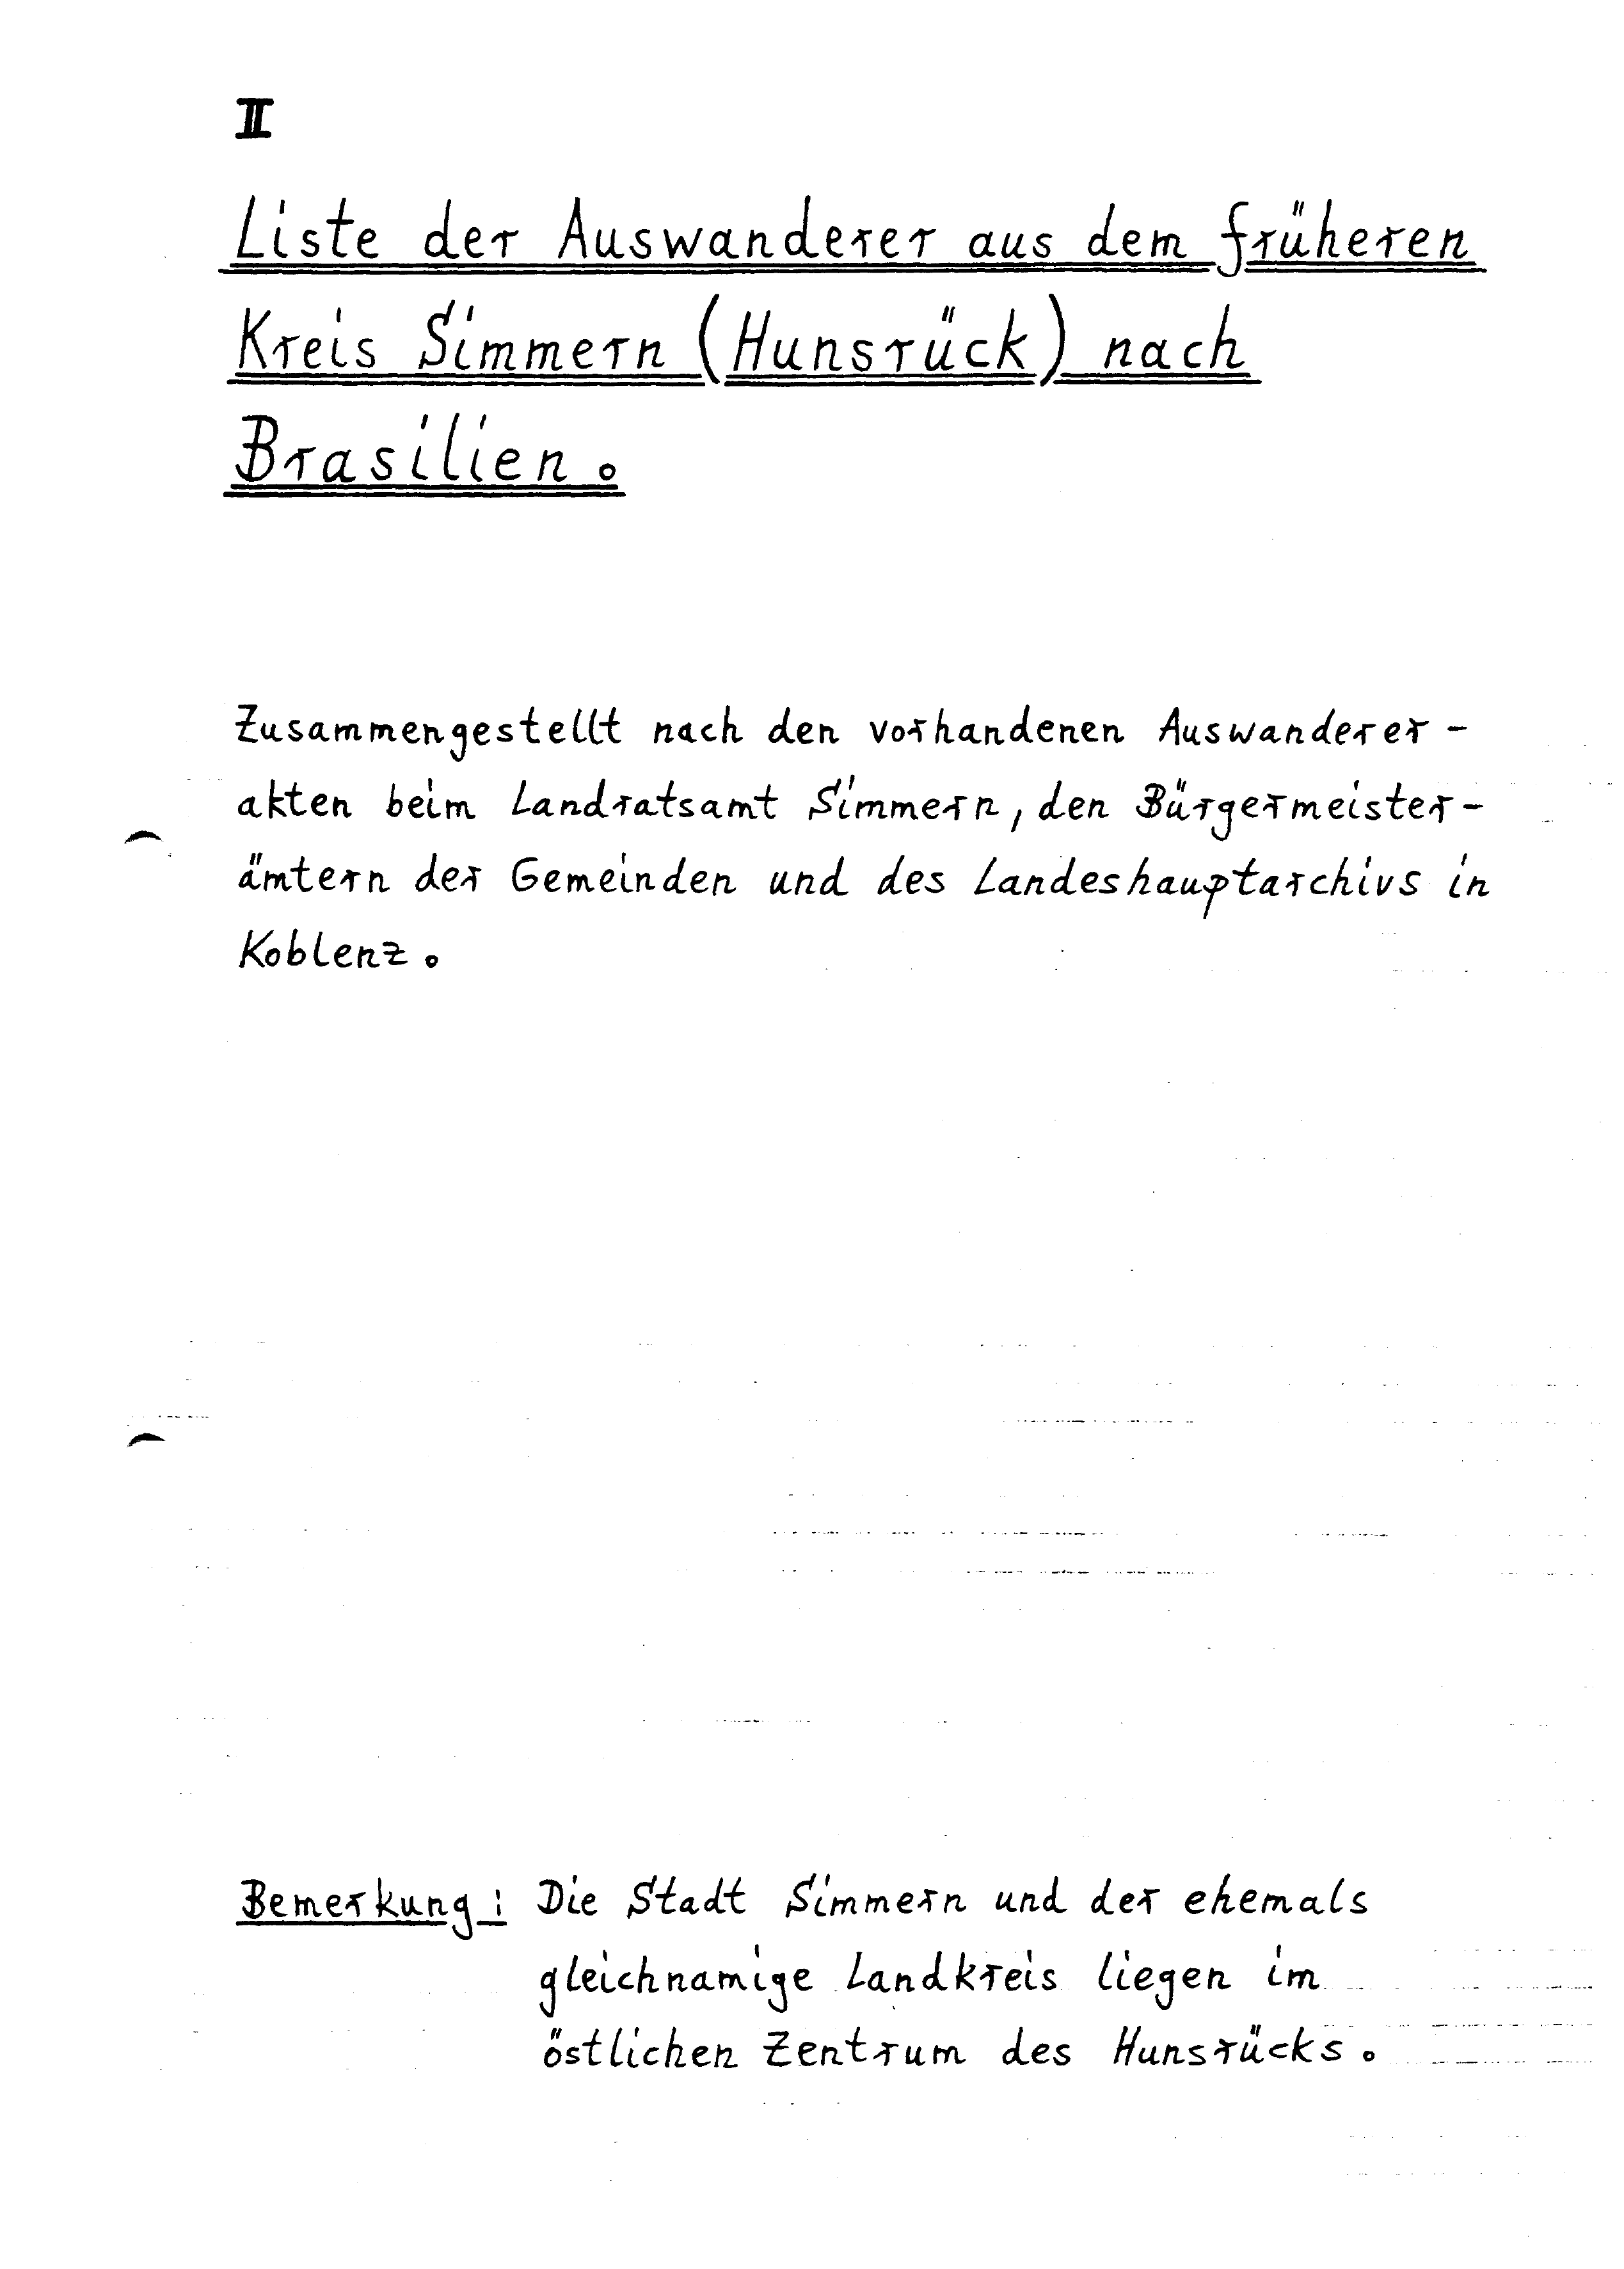 II
Liste der Auswanderer aus dem früheren
Kreis Simmern (Hunsrück) nach
Brasilien.
Zusammengestellt nach den vorhandenen Auswanderer-
akten beim Landratsamt Simmern, den Bürgermeister-
ämtern der Gemeinden und des Landeshauptarchivs in
Koblenz.
Bemerkung: Die Stadt Simmern und der ehemals
gleichnamige Landkreis liegen im
östlichen Zentrum des Hunsrücks.